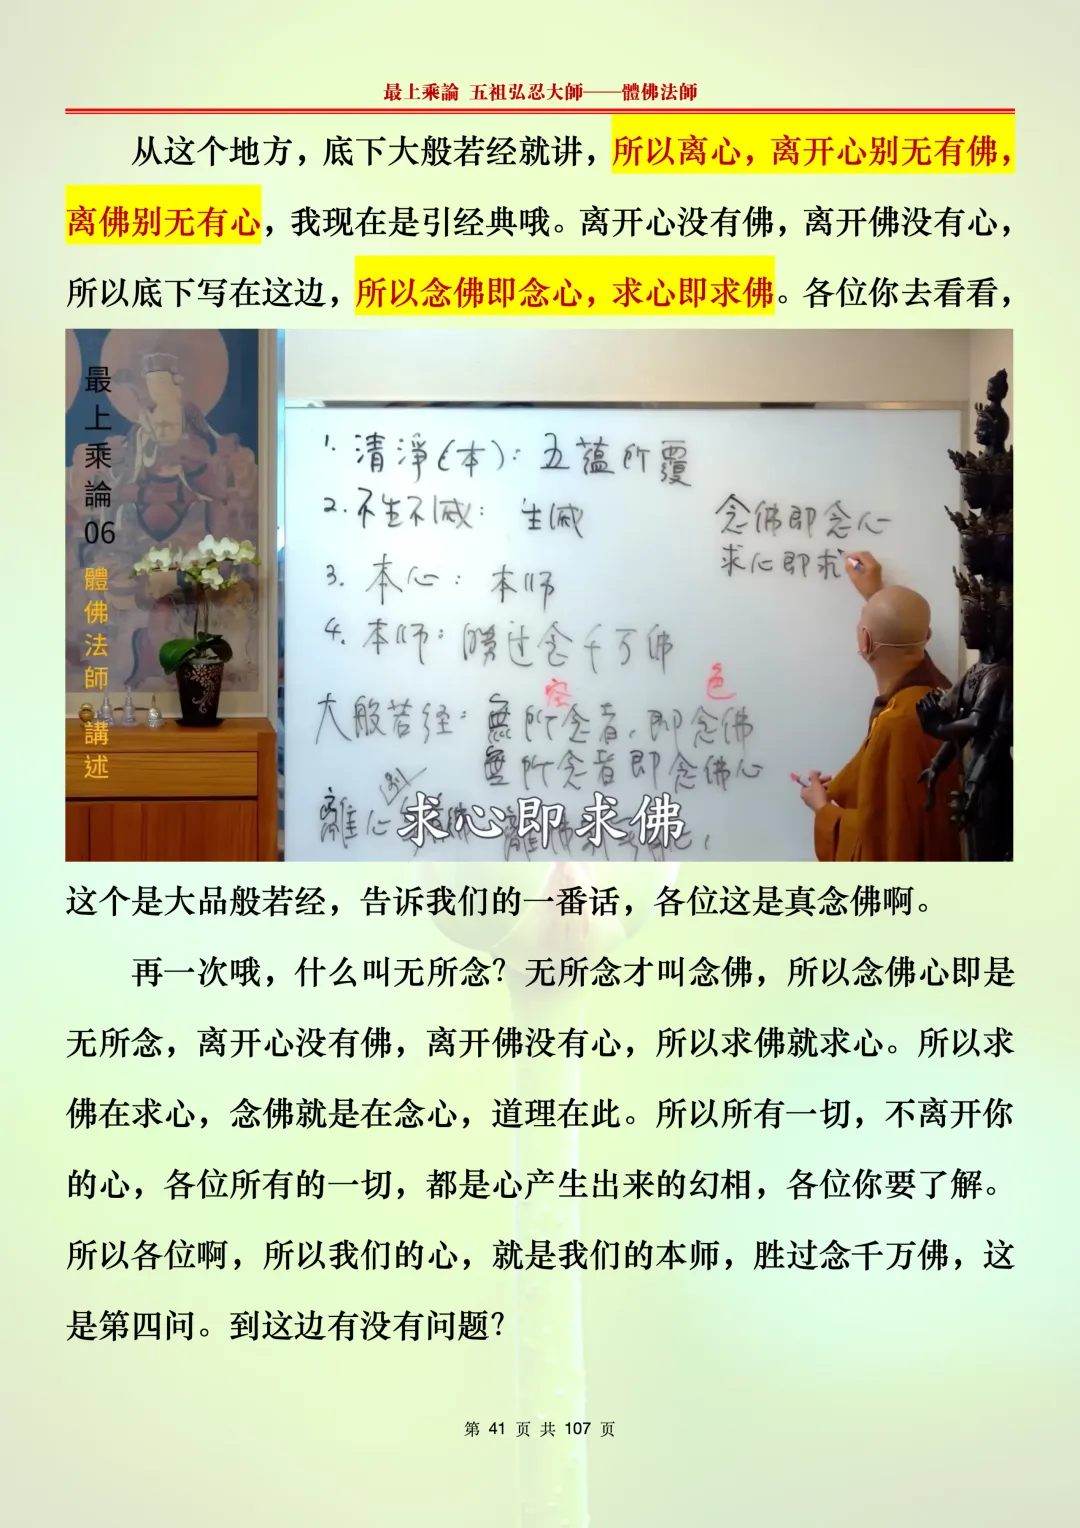 最上乘論 五祖弘忍大師——體佛法師
从这个地方，底下大般若经就讲，所以离心，离开心别无有佛，
离佛别无有心，我现在是引经典哦。离开心没有佛，离开佛没有心，
所以底下写在这边，所以念佛即念心，求心即求佛。各位你去看看，
最上乘論06 體佛法師 講述
1. 清淨(本)：五蘊所覆
2. 不生不滅：生滅
3. 本心：本师
4. 本师：勝过念千万佛
念佛即念心
求心即求
空
色
大般若经：無所念者，即念佛
無所念者即念佛心
別
離心
求心即求佛
这个是大品般若经，告诉我们的一番话，各位这是真念佛啊。
再一次哦，什么叫无所念？无所念才叫念佛，所以念佛心即是
无所念，离开心没有佛，离开佛没有心，所以求佛就求心。所以求
佛在求心，念佛就是在念心，道理在此。所以所有一切，不离开你
的心，各位所有的一切，都是心产生出来的幻相，各位你要了解。
所以各位啊，所以我们的心，就是我们的本师，胜过念千万佛，这
是第四问。到这边有没有问题？
第 41 页 共 107 页